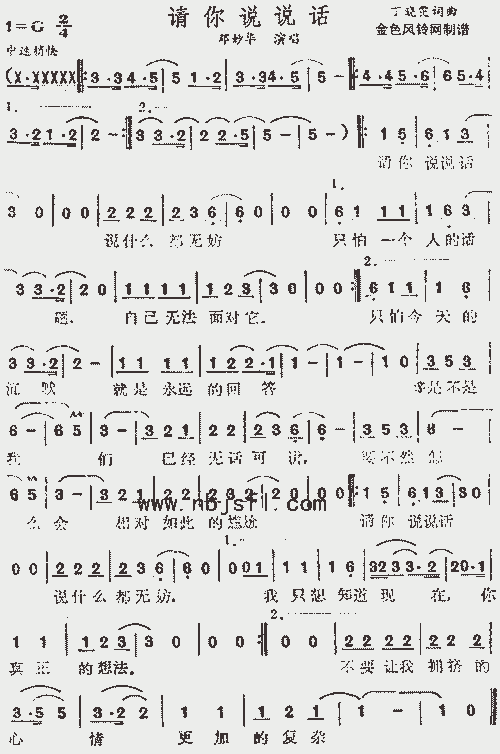 请你说说话
丁晓雯词曲
1=G 2/4
邓妙华 演唱
金色风铃网制谱
中速稍快
(X·XXXXX‖:3·34·5|5 12·|3·34·5|5 5-|5-‖:4·45·6|6 5·4|
1.
2.
3·21·2|2-:‖3 3·2|2 2·5|5-|5-)‖:1 5|6 1 3|
请你 说说话
3 0|0 0|2 2 2|2 3 6|6 0|0 0|6 1 1 1|1 6 3|
1.
说什么 都无妨 只怕 一个 人的话
3 3·2|2 0|1 1 1 1|1 2 3|3 0|0 0:‖6 1 1|1 6|
2.
题, 自己无法 面对它, 只怕今 天的
3 3·2|2-|1 1 1 1|1 2 2·1|1-|1-|1 0|3 5 3|
沉 默 就是 永远 的回 答 等是不是
6-|6 5|3-|3 2 1|2 2|2 3 6|6-|3 5 3|6-|
我 们 已经 无话 可 说, 要不然怎
6 5|3-|3 2 1|2 2|0:‖1 5|6 1 3|3 0|
么会 相对 如此 的尴尬 请你 说说话
www.nbjsfl.com
0 0|2 2 2|2 3 6|6 0|0 0 1|1 1|1 6|3 2 3 3·2|2 0·1|
1.
说什么都无妨, 我 只想 知道 现 在, 你
1 1|1 2 3|3 0|0 0:‖0 0|2 2 2 2|2 2 2|
2.
真正 的想法。 不要让我 拥挤的
3·5 5|3·2 2|2 2|2 2 1|1|1-|1 0‖
心 情 更 加 的 复杂